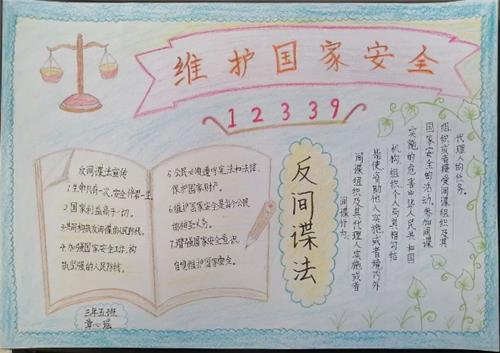 维护国家安全
12339
反间谍法宣传
1.生命只有一次,安全伴君一生。
2.国家利益高于一切。
3.共同构筑反间谍人民防线。
4.加强国家安全工作,构
筑坚强的人民防线。
6.公民必须遵守宪法和法律,
保护国家财产。
6.维护国家安全是每个公民
的相关义务。
7.增强国家安全意识,
自觉维护国家安全。
反间谍法
代理人的任务。
组织或者接受间谍组织及其
国家安全的活动,参加间谍
实施的危害中华人民共和国
机构、组织、个人与其相勾结
指使、资助他人实施或者境内外
间谍组织及其代理人实施或者
间谍行为:
三年五班
章心瑶